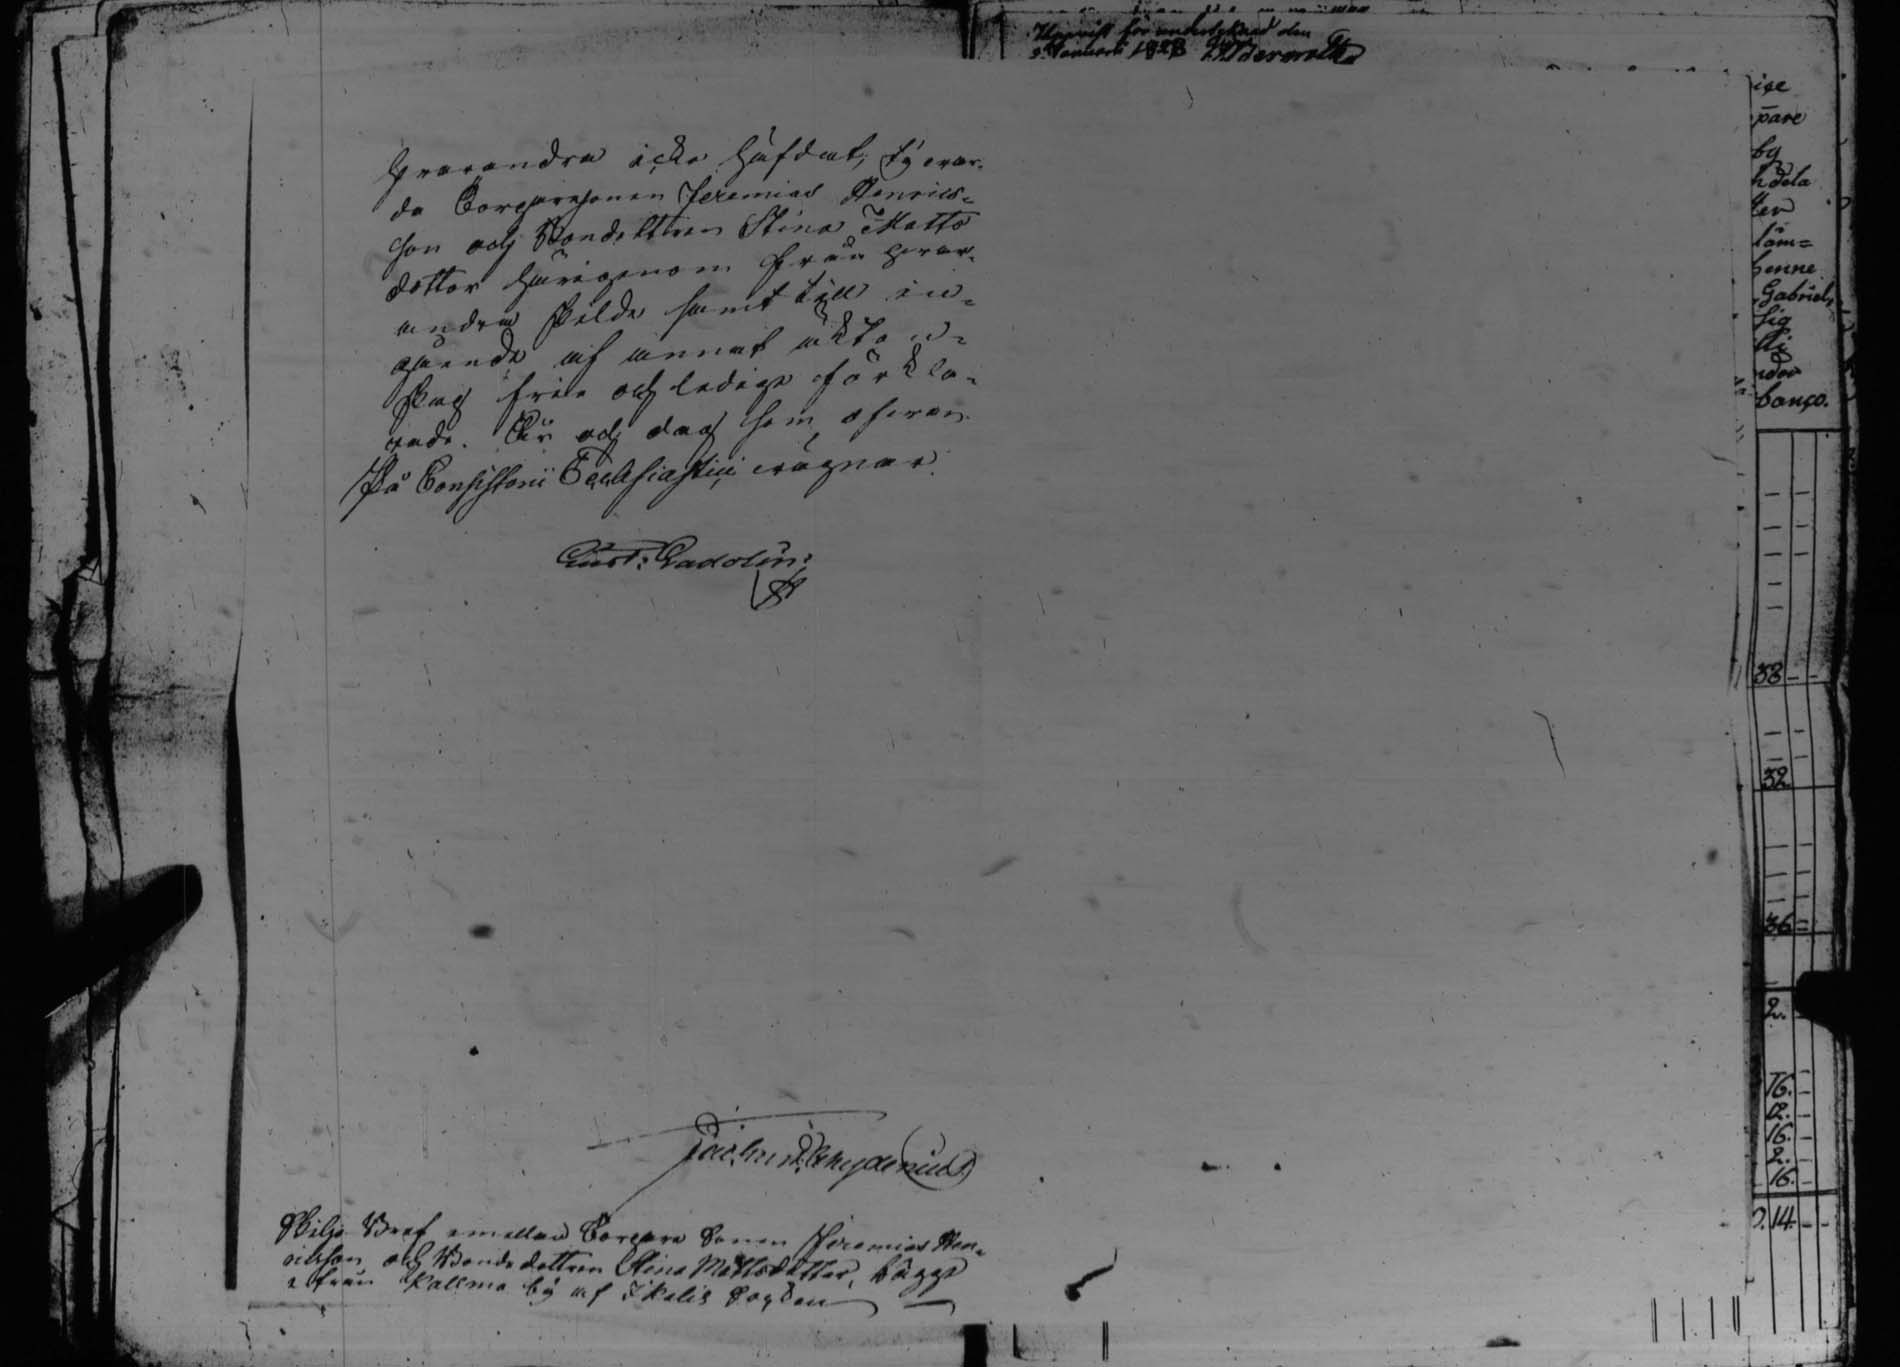 Uppvist för undertecknad den
2 Januari 1828
hvarandra icke häfdat; ty var-
da Torparesonen Jeremias Henrics-
son och Bondedottren Stina Matts
dotter härigenom från hvar-
andra skilde samt till in-
gående af annat äkten-
skap frie och ledige förkla-
rade. År och dag som ofvan
På Consistorii Ecclesiastici vägnar.
Gust: Gadolin;
Jac: Chydenius
Skiljo Bref emellan Torpare Sonen Jeremias Hen-
ricsson och Bonde dottren Stina Mattsdotter, bägge
ifrån Kallma by af Ikalis Socken
ige
pare
by
dela
ter
läm=
henne
Gabriel,
sig
der
banco.
38
32
36
2.
16.
2.
16.
2.
16.
14